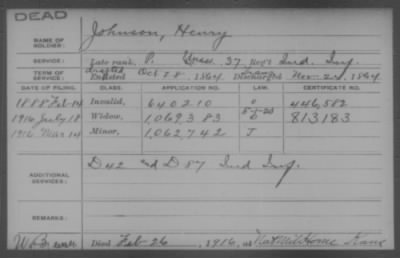 DEAD
NAME OF SOLDIER: Johnson, Henry
SERVICE: Late rank, P. Unas. 37 Reg't Ind. Inf.
TERM OF SERVICE: Drafted Enlisted Oct 28, 1864 Discharged Nov. 1864
DATE OF FILING. CLASS. APPLICATION NO. LAW. CERTIFICATE NO.
1888 Feb 14 Invalid, 640210 446,582
1916 July 18 Widow, 1,069383 813183
1916 Mar 14 Minor, 1,062,742 J
ADDITIONAL SERVICES: D 42 and D 87 Ind Inf.
REMARKS:
Died Feb 26, 1916, at Nat Mil Home Kans